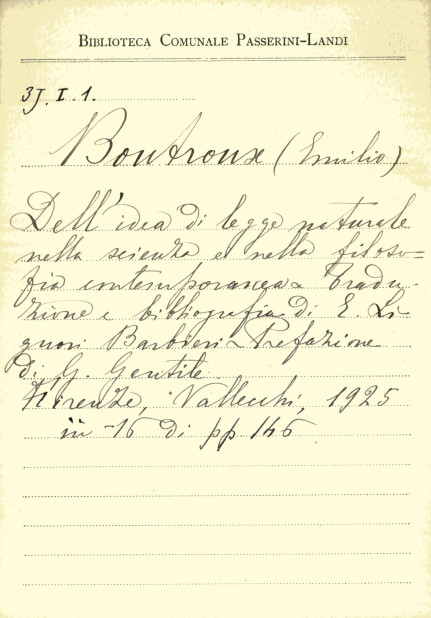 BIBLIOTECA COMUNALE PASSERINI-LANDI
3J. I. 1.
Boutroux (Emilio)
Dell'idea di legge naturale
nella scienza e nella filoso=
fia contemporanea - Tradu-
zione e bibliografia di E. Li
guori Barbieri - Prefazione
di G. Gentile
Firenze, Vallecchi, 1925
in -16 di pp 146